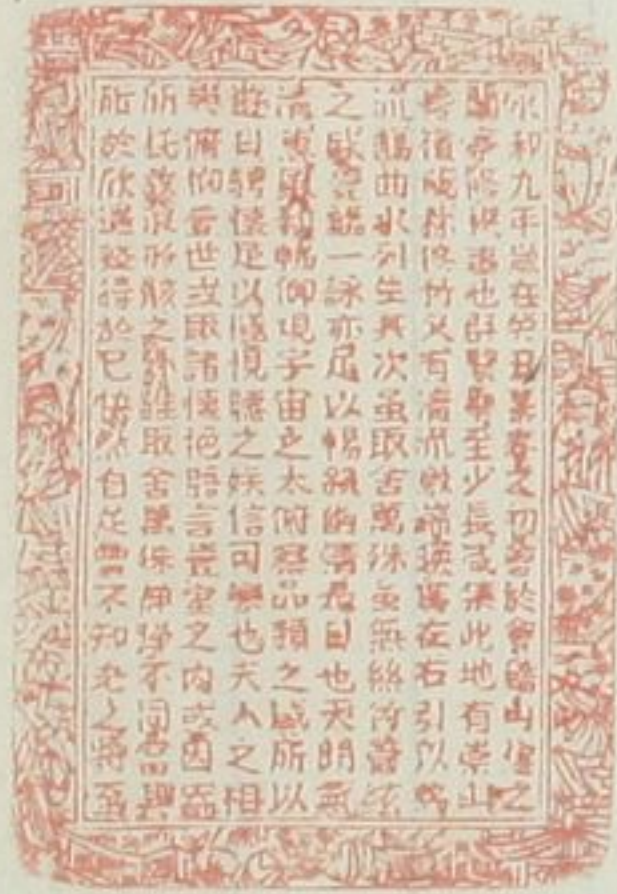 永和九年歲在癸丑暮春之初會於會稽山陰之
蘭亭修禊事也群賢畢至少長咸集此地有崇山
峻領茂林修竹又有清流激湍暎帶在右引以為
流觴曲水列坐其次虽取舍萬殊虽無絲竹管弦
之盛一觴一詠亦足以暢敘幽情是日也天朗氣
清惠風和暢仰觀宇宙之太俯察品類之盛所以
遊目騁懷足以極視聽之娛信可樂也夫人之相
與俯仰壹世或取諸懷抱晤言壹室之内或因寄
所託放浪形骸之外雖取舍萬殊靜躁不同當
所於欣遇暫得於己快然自足曾不知老之將至